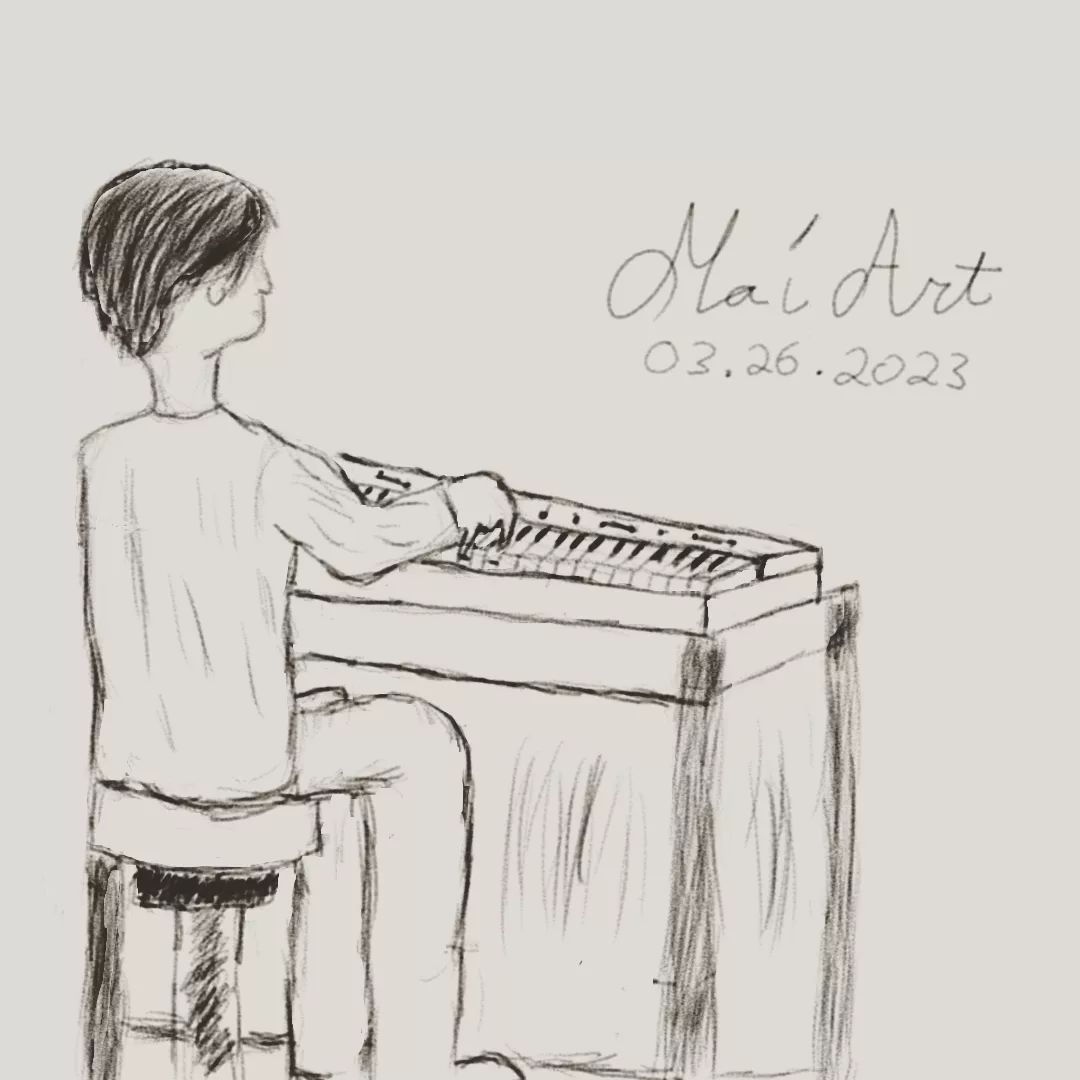 Maí Art
03.26.2023